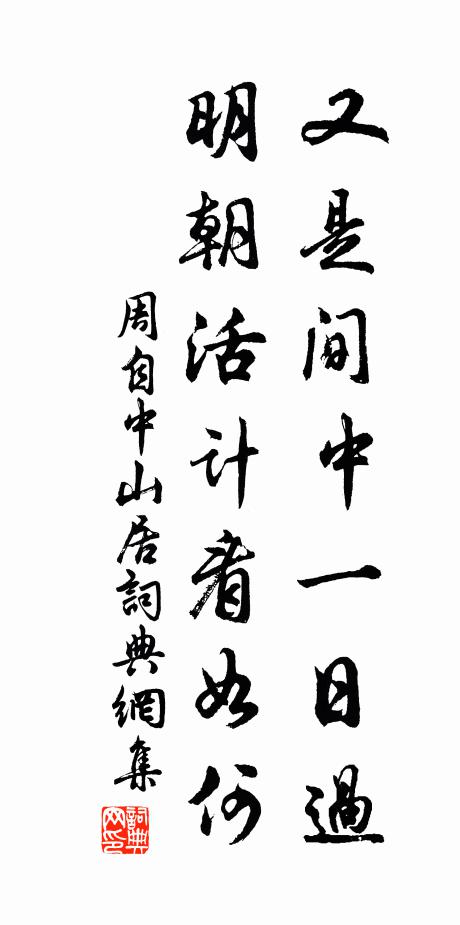 又是间中一日過
明朝活計看如何
周自中山居詞典網集
詞典網印